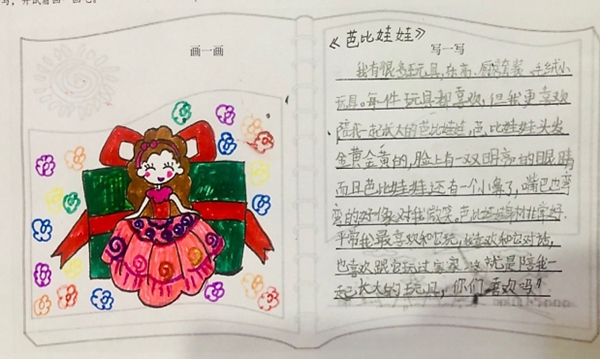 画一画
《芭比娃娃》
写一写
我有很多玩具,乐高、厨房套装、毛绒小
玩具。每一件玩具都喜欢,但我更喜欢
陪我一起成大的芭比娃娃,芭比娃娃头发
金黄金黄的,脸上有一双明亮的眼睛
而且芭比娃娃还有一个小鼻子,嘴巴也弯
弯的好像对我微笑。芭比娃娃身材非常好
平常我最喜欢和它玩,我喜欢和它对话,
也喜欢跟它玩过家家。这就是陪我一
起长大的玩具,你们喜欢吗?